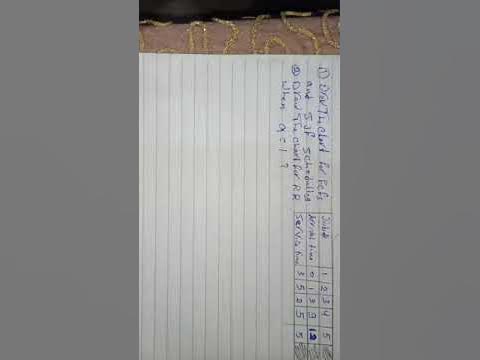 ① Draw The chart for FCFS
and SJF Scheduling.
② Draw The chart for RR
When q = 1 ?
Job# 1 2 3 4 5
Arrival time 0 1 3 9 12
Service time 3 5 2 5 5